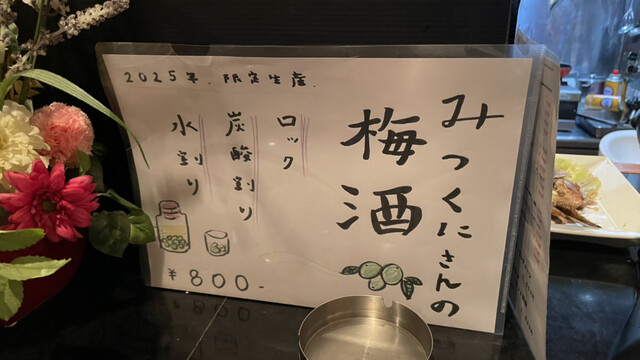 2025年.限定生産.
みつくにさんの
梅酒
ロック
炭酸割り
水割り
¥800-